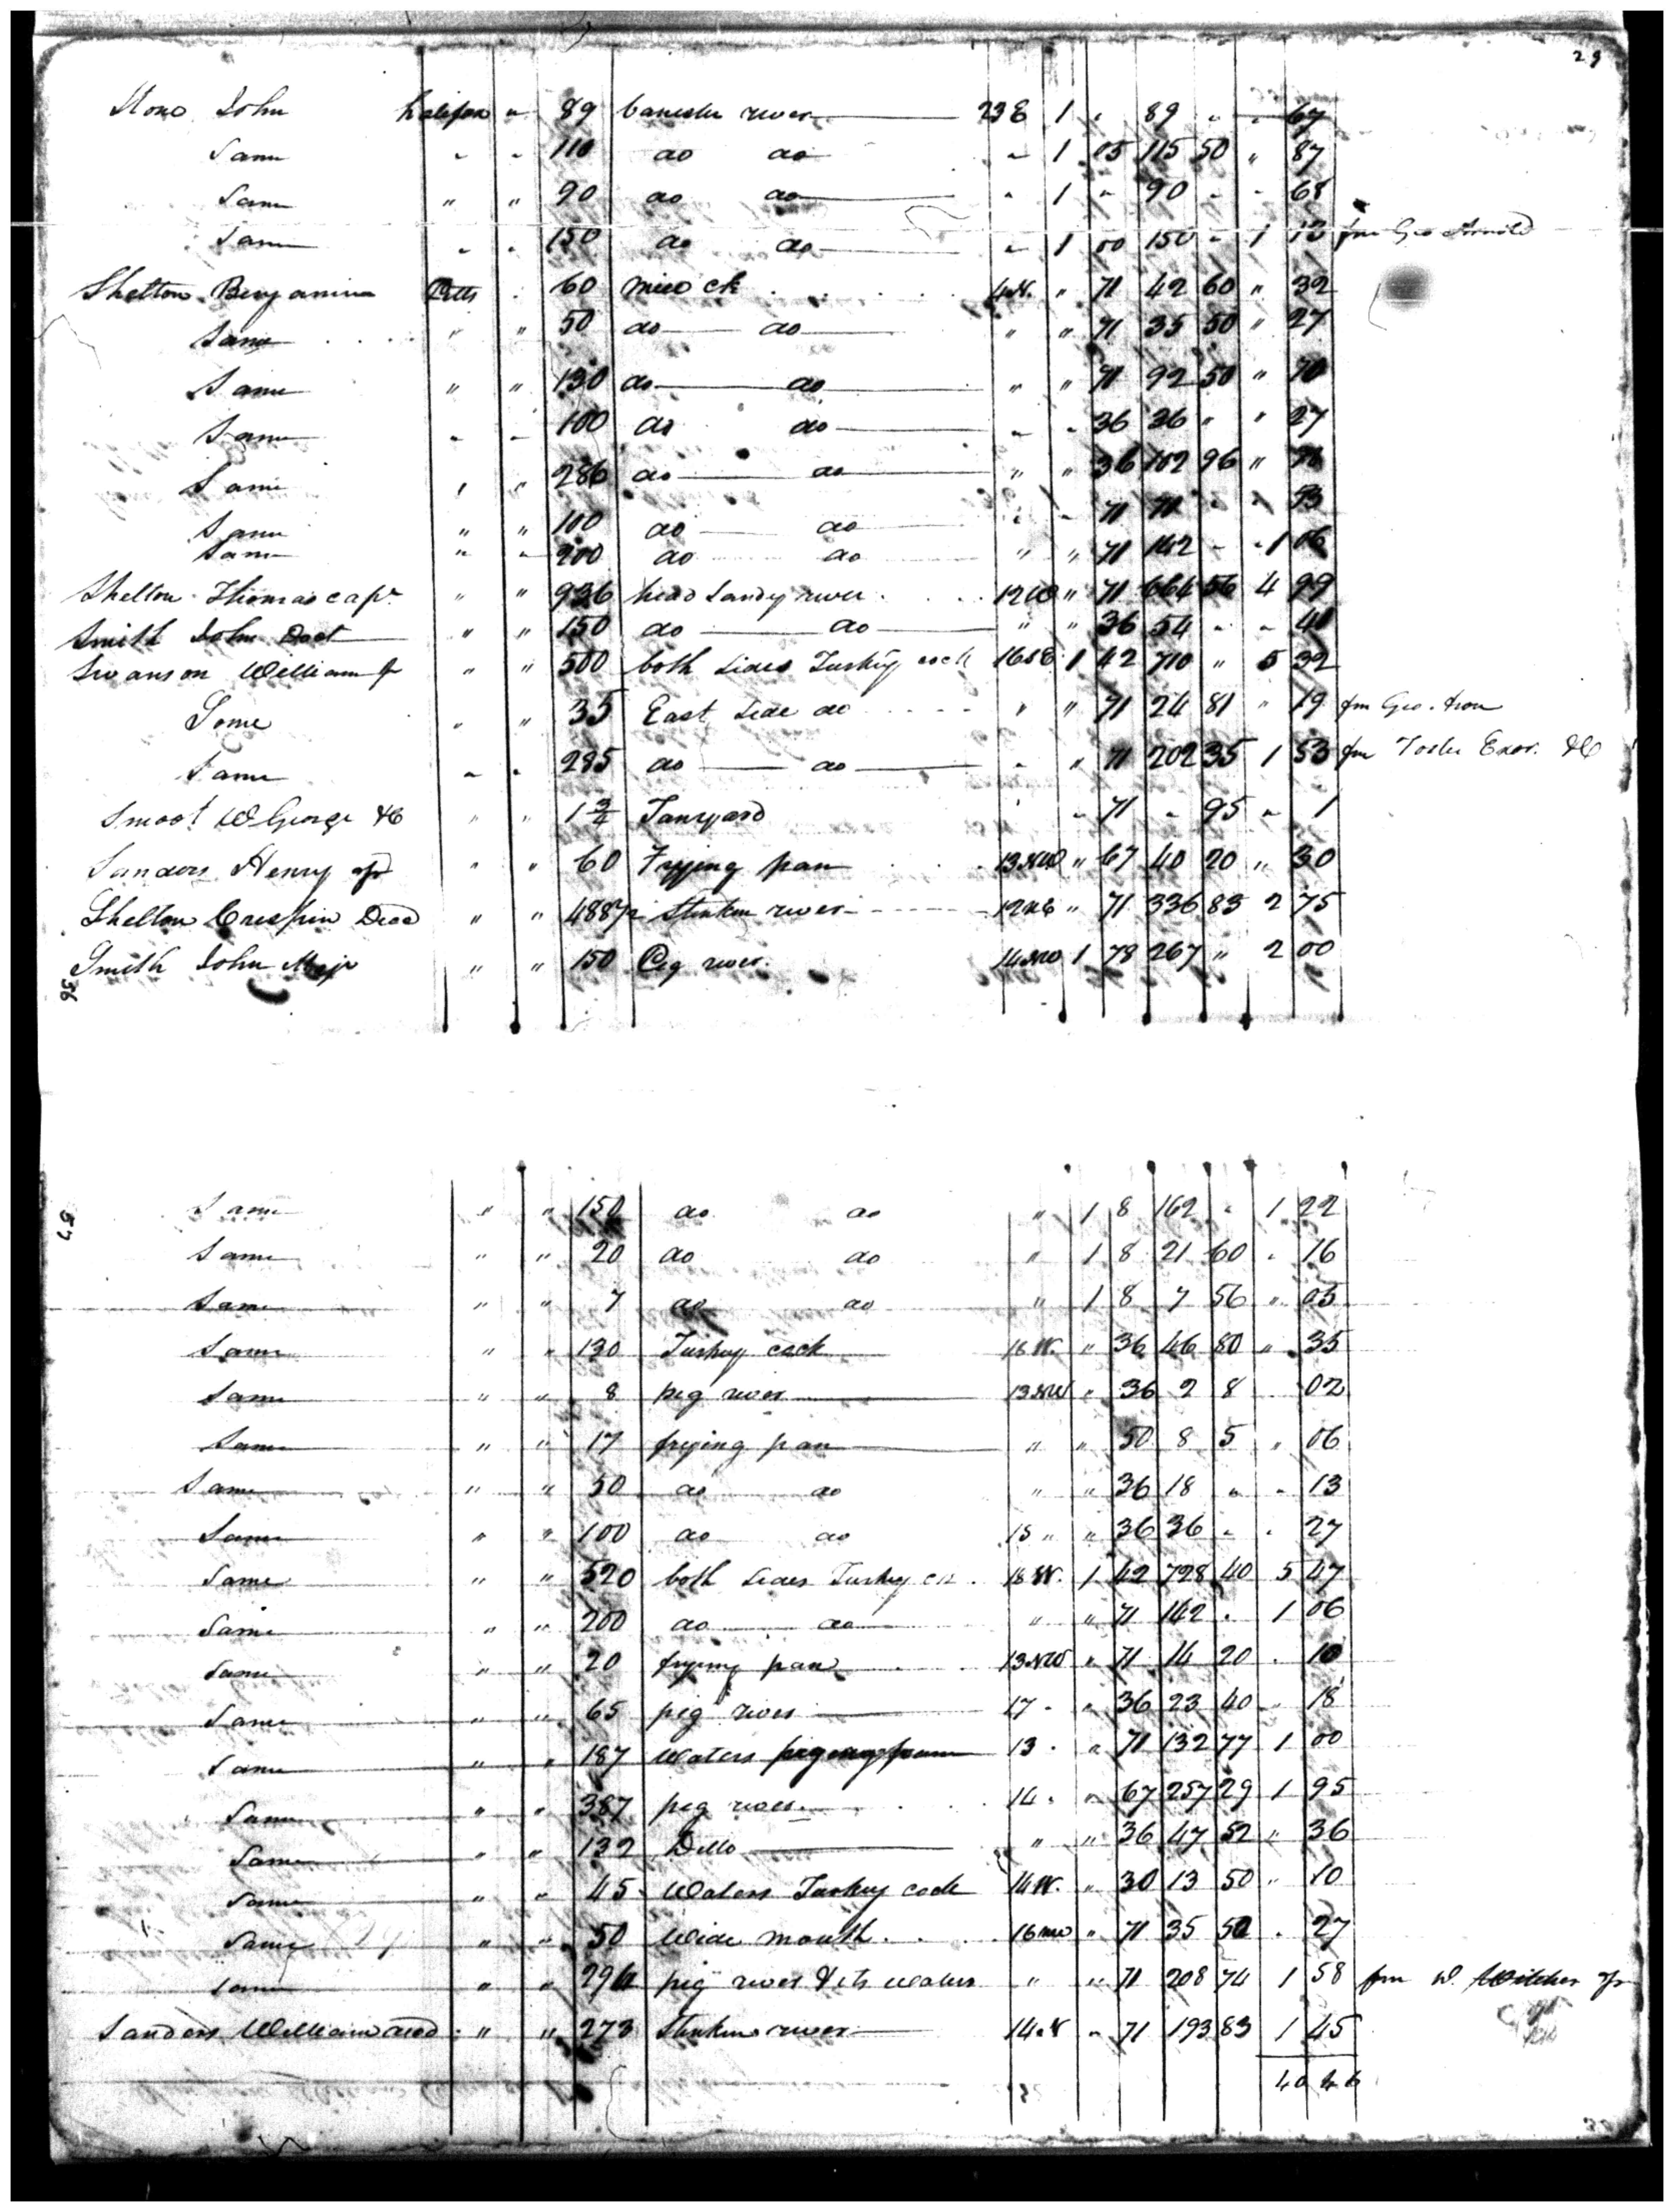 29
Stone John Halifax " 89 banester river 23 E 1 " 89 " " 67
Same " " 110 do do " 1 05 115 50 " 87
Same " " 90 do do " 1 " 90 " " 68
Same " " 150 do do " 1 00 150 " 1 13 fm Geo Arnold
Shelton Benjamin Pitts " 60 mire ck 4 N. " 71 42 60 " 32
Same " " 50 do do " " 71 35 50 " 27
Same " " 130 do do " " 71 92 50 " 70
Same " " 100 do do " " 36 36 " " 27
Same " " 286 do do " " 36 102 96 "
Same " " 100 do do " " 71 71 " " 53
Same " " 200 do do " " 71 142 " 1 06
Shelton Thomas capt. " " 936 head Sandy river 12 W " 71 664 56 4 99
Smith John Doct " " 150 do do " " 36 54 " " 40
Swanson William Jr " " 500 both sides Turkey cock 16 S E 1 42 710 " 5 32
Same " " 35 East side do " " 71 24 81 " 19 fm Geo.
Same " " 285 do do " " 71 202 35 1 53 fm Exor. &C
Smoot W George &C " " 1 3/4 Tanyard " " 71 " 95 " 1
Sanders Henry " " 60 Frying pan 13 NW " 67 40 20 " 30
Shelton Crespin Decd " " 488 1/2 Stinkin river 12 N E " 71 336 83 2 75
Smith John Majr " " 150 Pig river. 14 NW 1 78 267 " 2 00
36
57
Same " " 150 do do " 1 8 162 " 1 22
Same " " 20 do do " 1 8 21 60 " 16
Same " " 7 do do " 1 8 7 56 " 05
Same " " 130 Turkey cock 16 W. " 36 46 80 " 35
Same " " 8 pig river 13 NW " 36 2 8 " 02
Same " " 17 frying pan " " 50 8 5 " 06
Same " " 50 do do " " 36 18 " " 13
Same " " 100 do do 15 " " 36 36 " " 27
Same " " 520 both sides Turkey ck. 16 W. 1 42 728 40 5 47
Same " " 200 do do " " 71 142 " 1 06
Same " " 20 frying pan 13 NW " 71 14 20 " 10
Same " " 65 pig river 17 " " 36 23 40 " 18
Same " " 187 Waters frying pan 13 " " 71 132 77 1 00
Same " " 387 pig river 14 " " 67 257 29 1 95
Same " " 132 Ditto " " 36 47 52 " 36
Same " " 45 Waters Turkey cock 14 W. " 30 13 50 " 10
Same " " 50 Wide mouth 16 NW " 71 35 50 " 27
Same " " 294 pig river & its waters " " 71 208 74 1 58 fm W. Witcher Jr
Sanders William decd " " 273 Stinkin river 14 N " 71 193 83 1 45
40 46
30